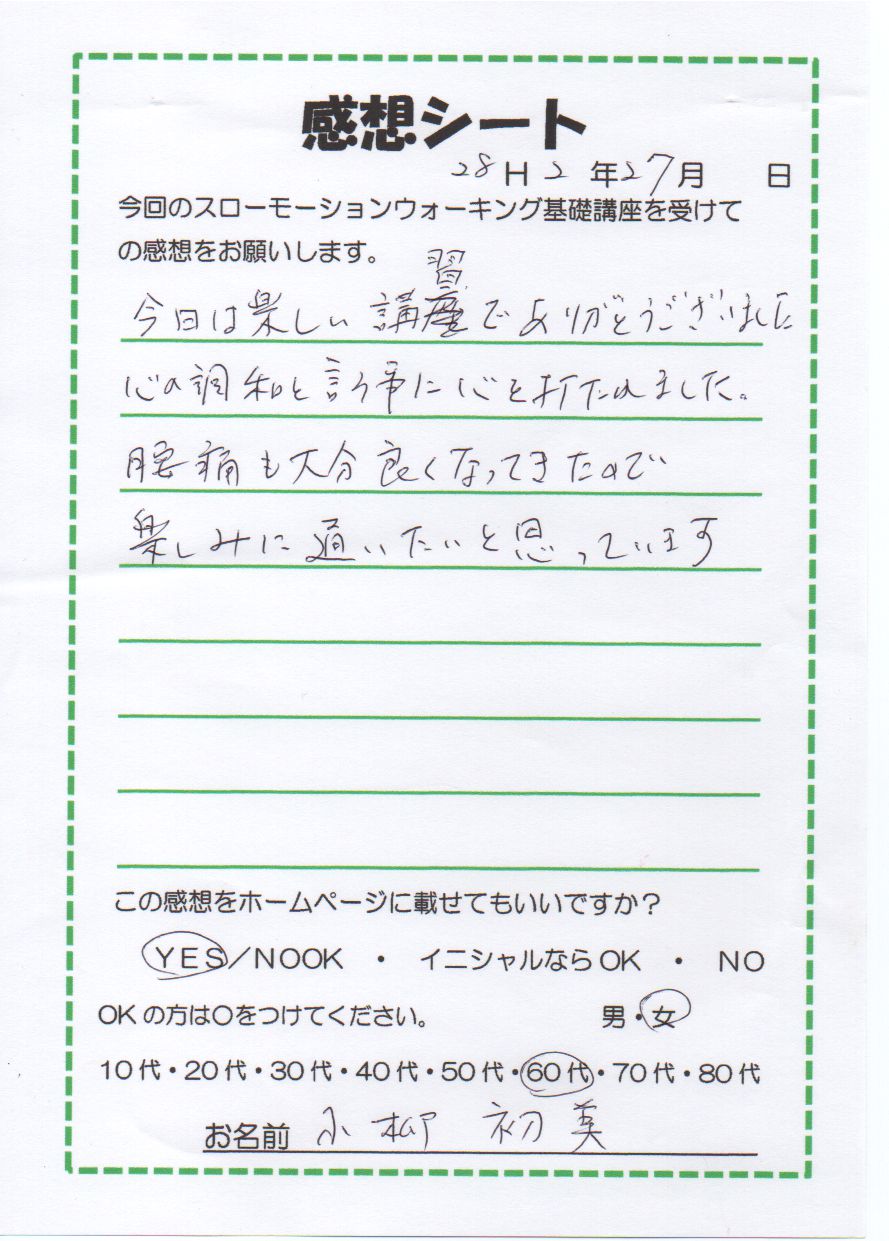 感想シート
28 H 2 年 27 月 日
今回のスローモーションウォーキング基礎講座を受けて
の感想をお願いします。
習
今日は楽しい講座でありがとうございました
心の調和と言う事に心を打たれました。
腰痛も大分良くなってきたので
楽しみに通いたいと思っています
この感想をホームページに載せてもいいですか?
YES/NOOK ・ イニシャルならOK ・ NO
OKの方は○をつけてください。 男・女
10代・20代・30代・40代・50代・60代・70代・80代
お名前 小柳 初美